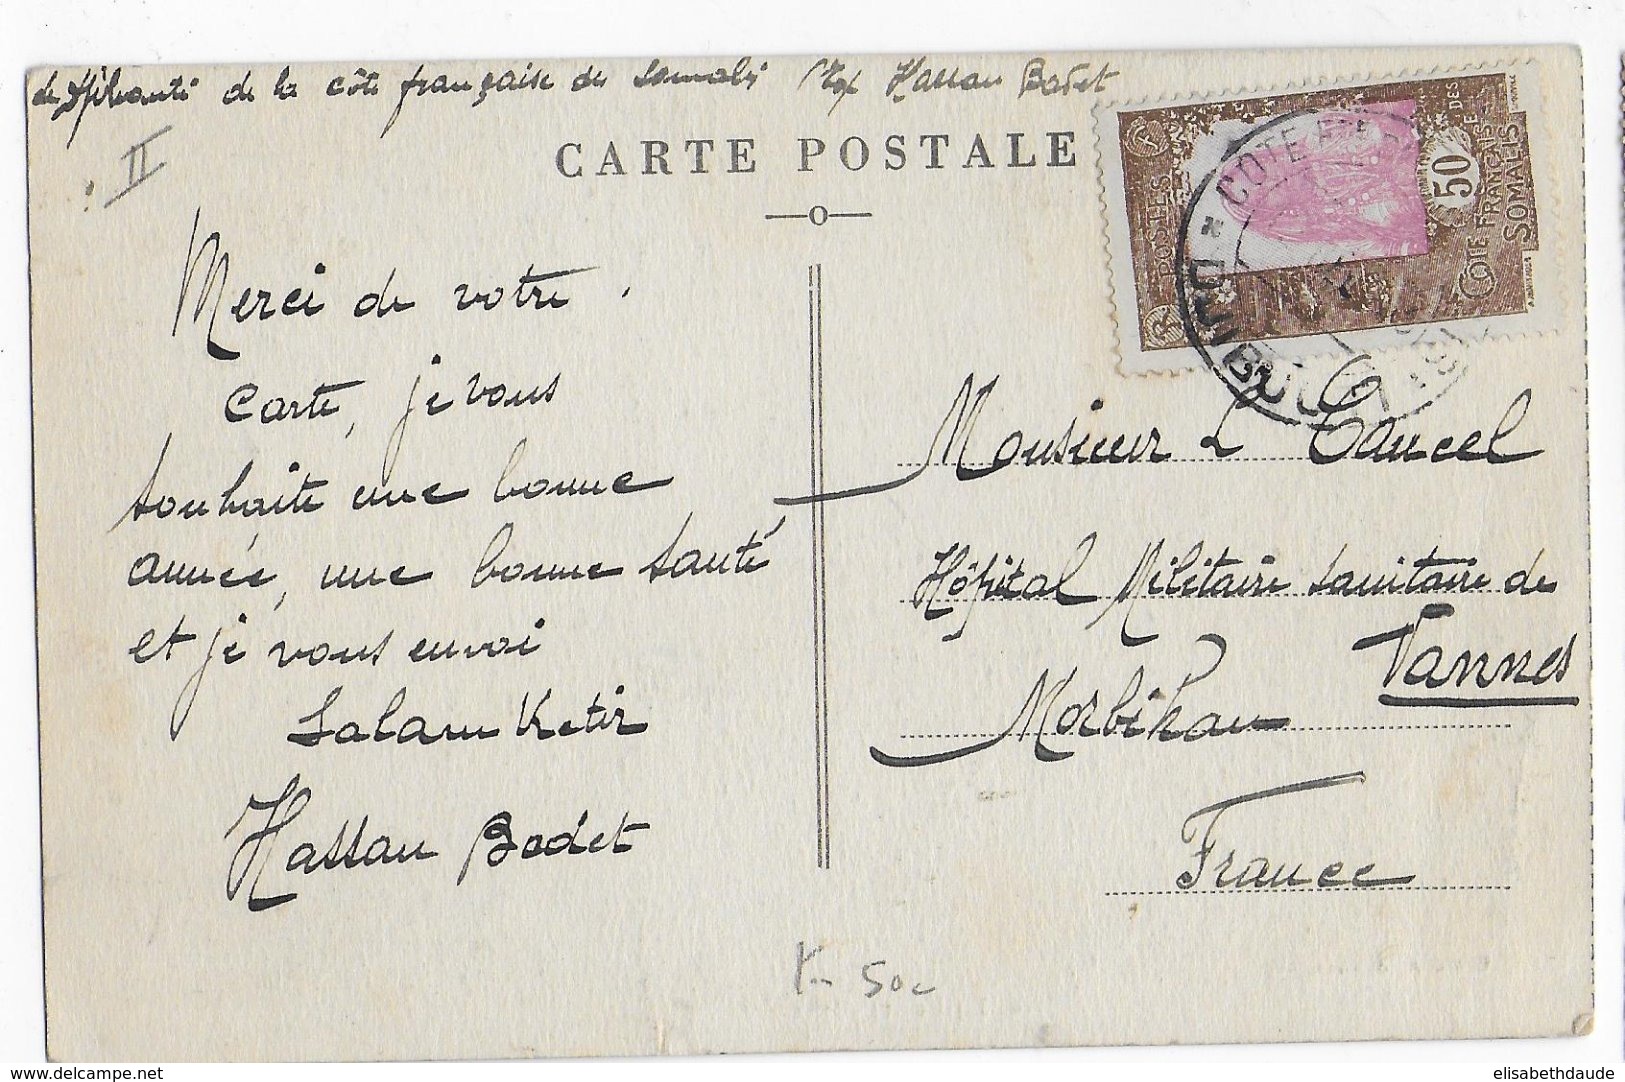 de Djibouti de la côte française des Somalis Hassan Badet
II
CARTE POSTALE
Merci de votre
carte, je vous
souhaite une bonne
année, une bonne santé
et je vous envoi
Salam Ketir
Hassan Bodet
POSTES
RF
50
CÔTE FRANÇAISE DES
SOMALIS
COTE
DJIBOUTI
Monsieur L Cancel
Hôpital Militaire sanitaire de
Vannes
Morbihan
France
50c
delcampe.net
elisabethdaude